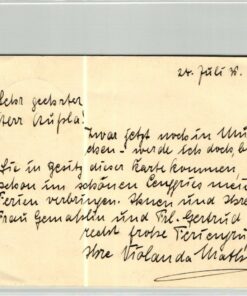 24. Juli 38.
Sehr geehrter
Herr Kupla!
Zwar jetzt noch in Mün
chen - werde ich doch, b
Sie in Besitz dieser Karte kommen,
schon im schönen Lenggries mei
Ferien verbringen. Ihnen und Ihre
Frau Gemahlin und Frl. Gertrud
recht frohe Feriengrü
Ihre Violanda Math